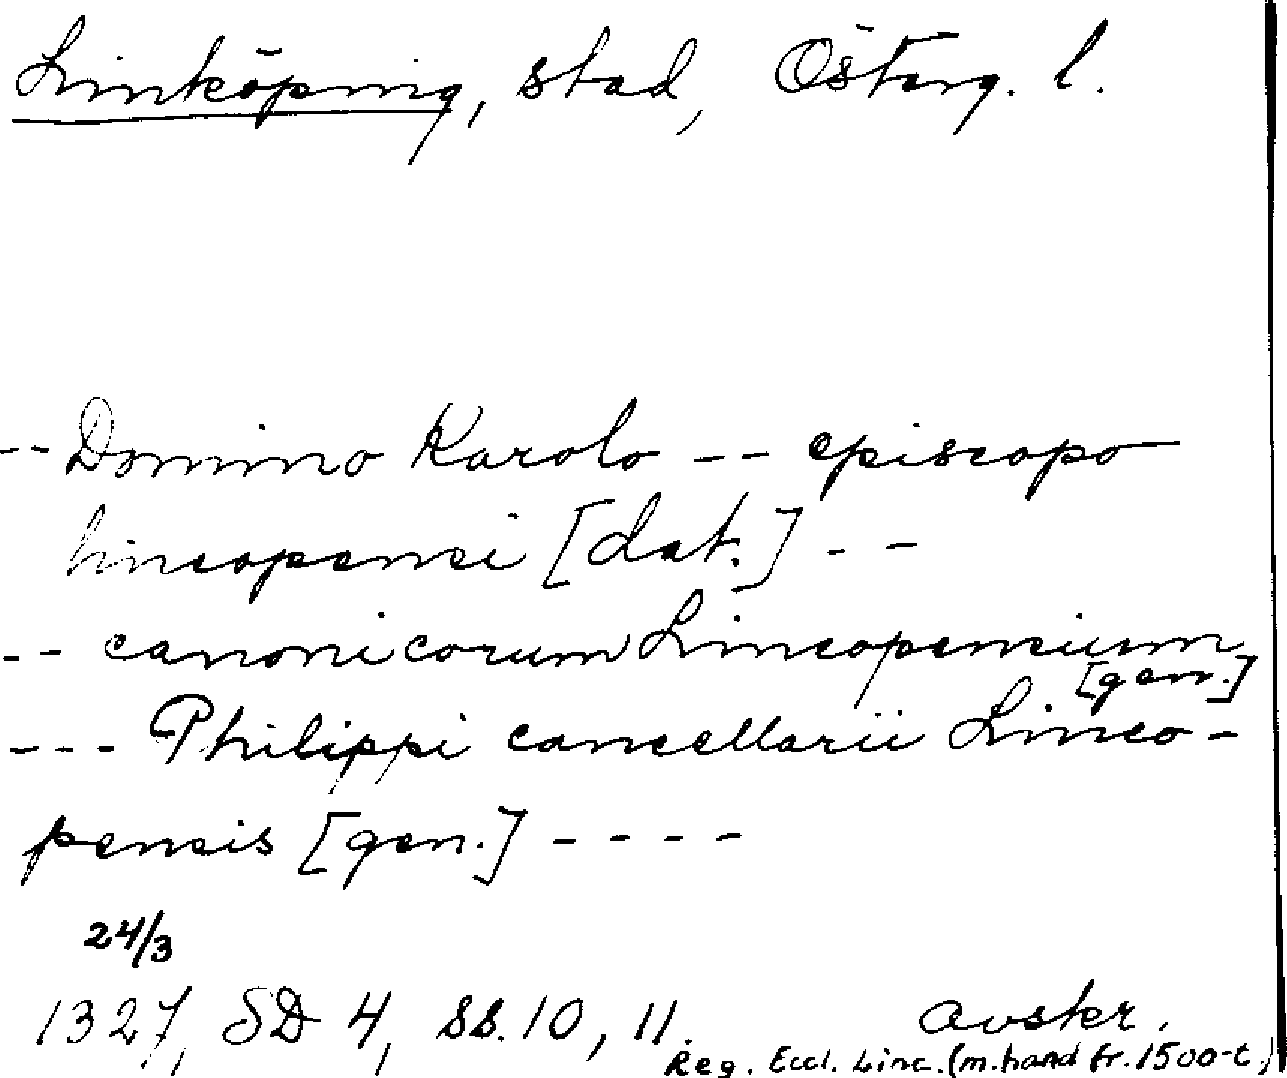 Linköping, stad, Österg. l.
-- Domino Karolo -- episcopo
lincopensi [dat.] --
-- canonicorum Lincopensium
[gen.]
--- Philippi cancellarii Linco-
pensis [gen.] ----
24/3
1327, SD 4, ss. 10, 11. avskr.
Reg. Eccl. Linc. (m. hand fr. 1500-t.)